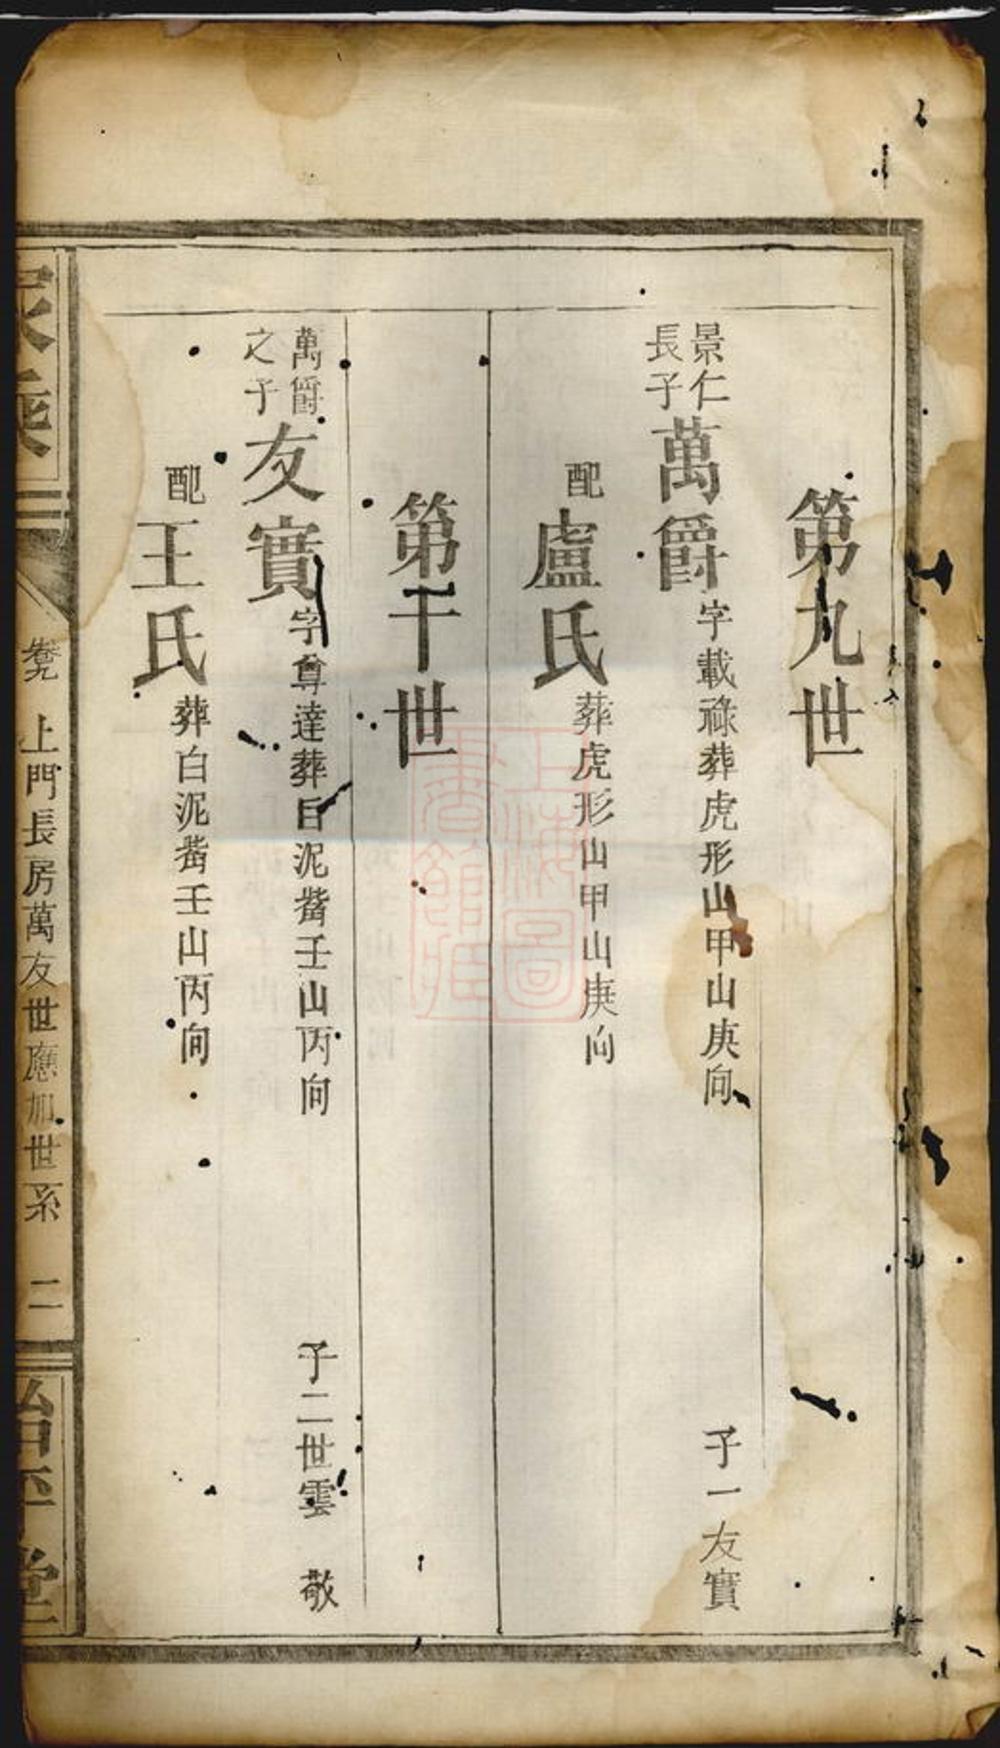 第九世
景仁
長子
萬爵
字載祿葬虎形山甲山庚向
子一友實
配
盧氏
葬虎形山甲山庚向
第十世
萬爵
之子
友實
字尊達葬白泥嘴壬山丙向
子二世雲 敬
配
王氏
葬白泥嘴壬山丙向
家乘
卷九 上門長房萬友世應加世系 二
治平堂
上海圖書館藏